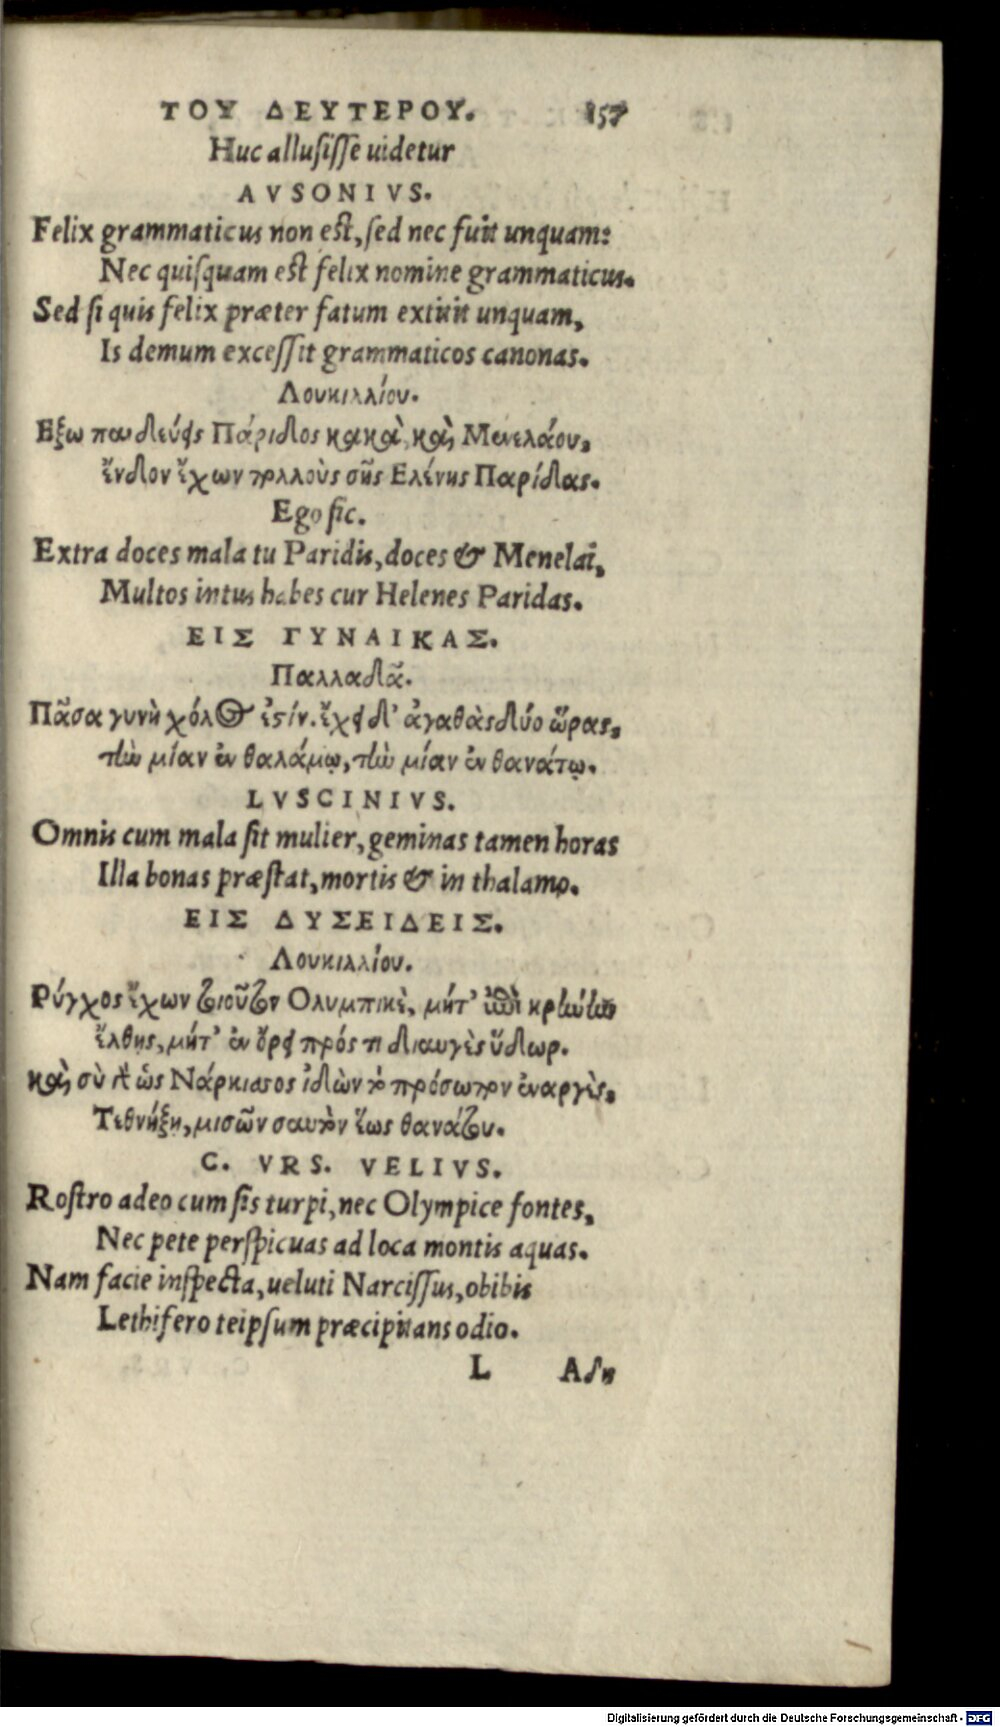 ΤΟΥ ΔΕΥΤΕΡΟΥ. 157
Huc allusisse uidetur
AVSONIVS.
Felix grammaticus non est, sed nec fuit unquam:
Nec quisquam est felix nomine grammaticus.
Sed si quis felix præter fatum extitit unquam,
Is demum excessit grammaticos canonas.
Λουκιλλίου.
Εξω παιδεύεις Πάριδος κακὰ, καὶ Μενελάου,
ἔνδον ἔχων πολλοὺς σῆς Ελένης Παρίδας.
Ego sic.
Extra doces mala tu Paridis, doces & Menelai,
Multos intus habes cur Helenes Paridas.
ΕΙΣ ΓΥΝΑΙΚΑΣ.
Παλλαδᾶ.
Πᾶσα γυνὴ χόλος ἐστίν. ἔχει δ' ἀγαθὰς δύο ὥρας,
τὴν μίαν ἐν θαλάμῳ, τὴν μίαν ἐν θανάτῳ.
LVSCINIVS.
Omnis cum mala sit mulier, geminas tamen horas
Illa bonas præstat, mortis & in thalamo.
ΕΙΣ ΔΥΣΕΙΔΕΙΣ.
Λουκιλλίου.
Ρύγχος ἔχων τοιοῦτον Ολυμπικὲ, μήτ' ἐπὶ κρήνην
ἔλθης, μήτ' ἐν ὄρει πρός τι διαυγὲς ὕδωρ.
καὶ σὺ γὰρ ὡς Νάρκισσος ἰδὼν τὸ πρόσωπον ἐναργὲς,
Τεθνήξη, μισῶν σαυτὸν ἕως θανάτου.
C. VRS. VELIVS.
Rostro adeo cum sis turpi, nec Olympice fontes,
Nec pete perspicuas ad loca montis aquas.
Nam facie inspecta, ueluti Narcissus, obibis
Lethifero teipsum præcipitans odio.
L Αδη
Digitalisierung gefördert durch die Deutsche Forschungsgemeinschaft - DFG